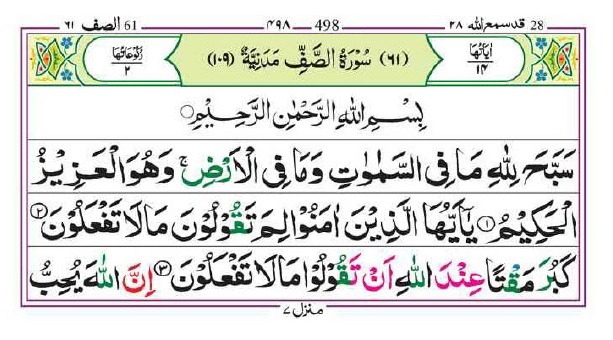 28 قد سمع اللہ ۲۸ 498 ۴۹۸ 61 الصف ۶۱
اٰیَاتُهَا ۱۴ (۶۱) سُوْرَةُ الصَّفِّ مَدَنِیَّةٌ (۱۰۹) رُكُوْعَاتُهَا ۲
بِسْمِ اللّٰهِ الرَّحْمٰنِ الرَّحِیْمِ
سَبَّحَ لِلّٰهِ مَا فِی السَّمٰوٰتِ وَمَا فِی الْاَرْضِ ۚ وَهُوَ الْعَزِیْزُ
الْحَكِیْمُ ۝۱ یٰۤاَیُّهَا الَّذِیْنَ اٰمَنُوْا لِمَ تَقُوْلُوْنَ مَا لَا تَفْعَلُوْنَ ۝۲
كَبُرَ مَقْتًا عِنْدَ اللّٰهِ اَنْ تَقُوْلُوْا مَا لَا تَفْعَلُوْنَ ۝۳ اِنَّ اللّٰهَ یُحِبُّ
منزل ۷